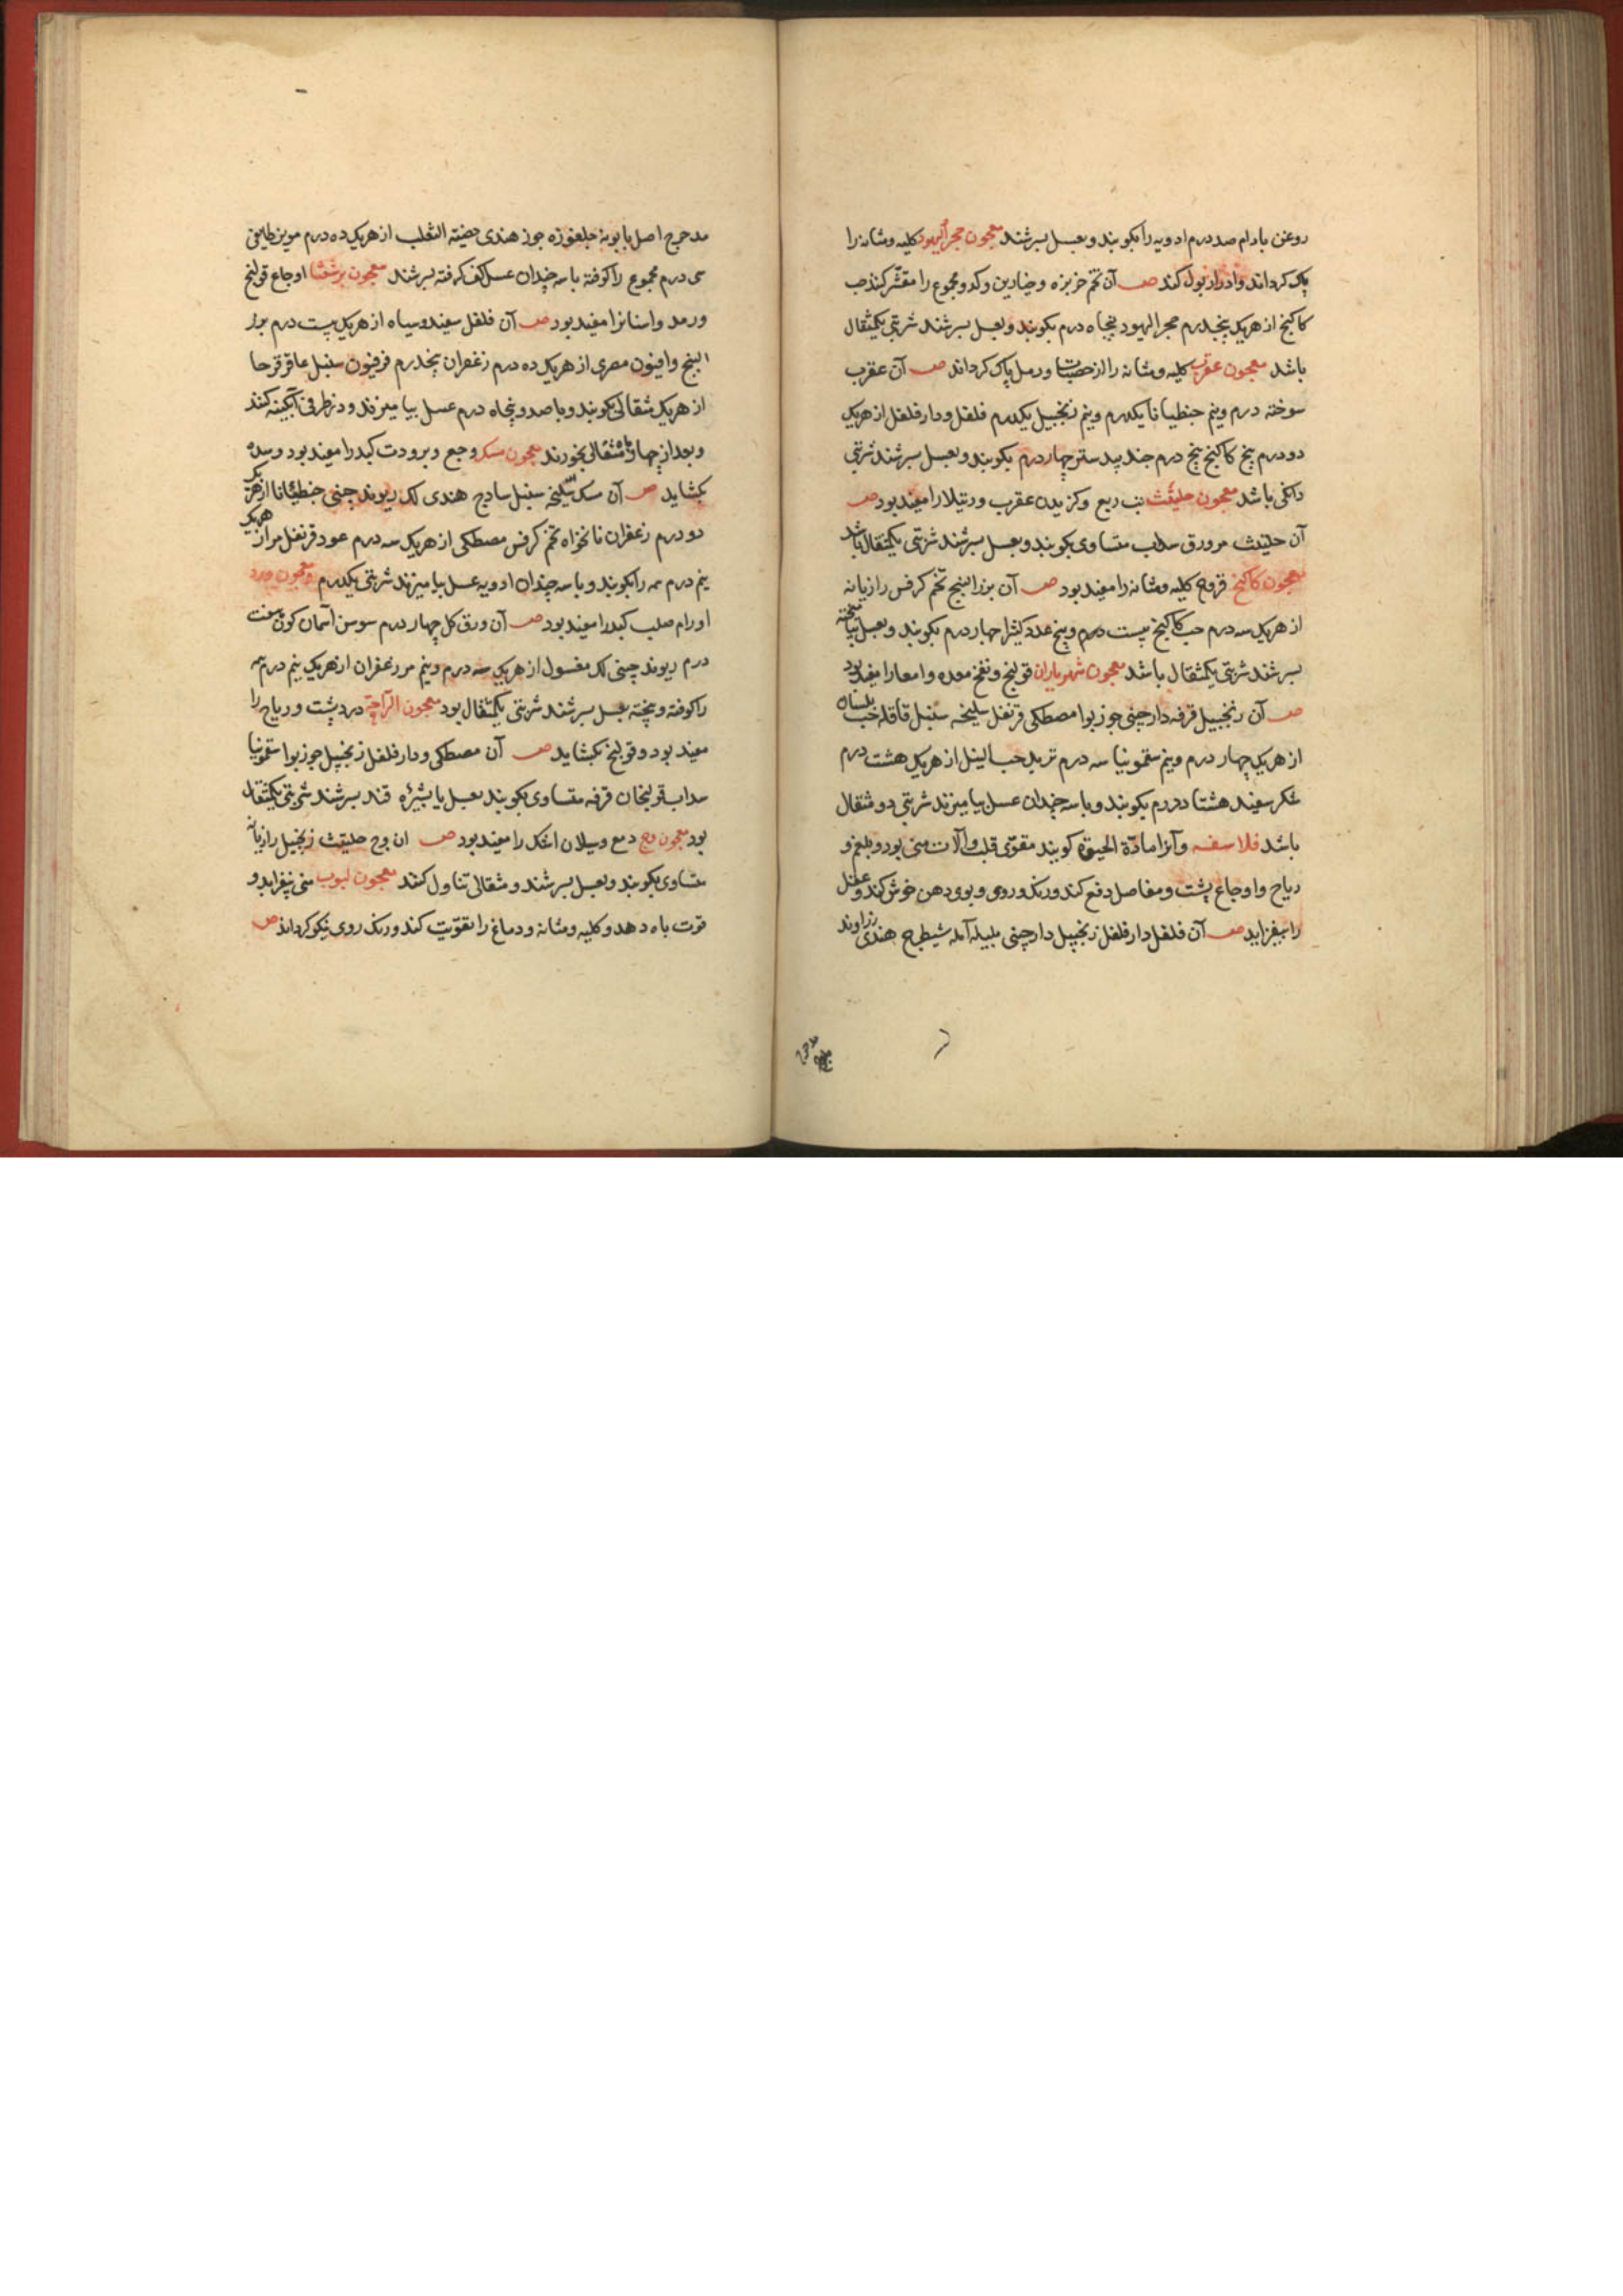 روغن بادام صد درم ادویه را بکوبند و بعسل بسرشند معجون حجر الیهود کلیه و مثانه را
پاک کرداند و ادرار بول کند صـ آن تخم خربزه و خیارین و کدو مجموع را مقشّر کنند حب
کاکنج از هریک پنجدرم حجر الیهود پنجاه درم بکوبند و بعسل بسرشند شربتی یکمثقال
باشد معجون عقرب کلیه و مثانه را از حصیات و رمل پاک کرداند صـ آن عقرب
سوخته درم و نیم جنطیانا یکدرم و نیم زنجبیل یکدرم فلفل و دارفلفل از هریک
دو درم بیخ کاکنج پنج درم جندبیدستر چهار درم بکوبند و بعسل بسرشند شربتی
دانکی باشد معجون حلیتث تب ربع و کزیدن عقرب و رتیلا را مفید بود صـ
آن حلیتث مر ورق سداب متساوی بکوبند و بعسل بسرشند شربتی یکمثقال باشد
معجون کاکنج قروح کلیه و مثانه را مفید بود صـ آن بزر البنج تخم کرفس رازیانه
از هریک سه درم حب کاکنج بیست درم و پنج عدد کتیرا چهار درم بکوبند و بعسل بیامیخته
بسرشند شربتی یکمثقال باشد معجون شهریاران قولنج و نفخ معده و امعا را مفید بود
صـ آن زنجبیل قرفه دارچینی جوزبوا مصطکی قرنفل سلیخه سنبل قاقله حب بلسان
از هریک چهار درم و نیم سقمونیا سه درم تربد حب النیل از هریک هشت درم
شکر سفید هشتاد درم بکوبند و با سه چندان عسل بیامیزند شربتی دو مثقال
باشد فلاسفه و آنرا مادّة الحیوة کویند مقوّی قلب و آلات منی بود و بلغم و
ریاح و اوجاع پشت و مفاصل دفع کند و رنک و روی و بوی دهن خوش کند و عقل
را بیفزاید صـ آن فلفل دارفلفل زنجبیل دارچینی بلیله آمله شیطرج هندی زراوند
مدحرج
مدحرج اصل بابونه جلغوزه جوز هندی خصیة الثعلب از هریک ده درم مویز طایفی
سی درم مجموع را کوفته با سه چندان عسل کف کرفته بسرشند معجون برشعثا اوجاع قولنج
و رمد و اسنانرا مفید بود صـ آن فلفل سفید و سیاه از هریک بیست درم بزر
البنج و افیون مصری از هریک ده درم زعفران پنجدرم فرفیون سنبل عاقرقرحا
از هریک مثقالی بکوبند و با صد و پنجاه درم عسل بیامیزند و در ظرفی آبکینه کنند
و بعد از چهار ماه مثقالی بخورند معجون سک وجع و برودت کبد را مفید بود و سده
بکشاید صـ آن سک سلیخه سنبل ساذج هندی لک ریوند چینی جنطیانا از هریک
دو درم زعفران نانخواه تخم کرفس مصطکی از هریک سه درم عود قرنفل مر از هریک
نیم درم سه را بکوبند و با سه چندان ادویه عسل بیامیزند شربتی یکدرم معجون ورد
اورام صلب کبد را مفید بود صـ آن ورق کل چهار درم سوسن آسمان کون هفت
درم ریوند چینی لک مغسول از هریک سه درم و نیم مر زعفران از هریک نیم درم همه
را کوفته و بیخته بعسل بسرشند شربتی یکمثقال بود معجون الراحة درد پشت و ریاح را
مفید بود و قولنج بکشاید صـ آن مصطکی و دارفلفل زنجبیل جوزبوا سقمونیا
سداب قولنجان قرفه متساوی بکوبند بعسل یا بشیره قند بسرشند شربتی یکمثقال
بود معجون وج دمع و سیلان اشک را مفید بود صـ ان وج حلیتث زنجبیل رازیانه
متساوی بکوبند و بعسل بسرشند و مثقالی تناول کنند معجون لبوب منی بیفزاید و
قوت باه دهد و کلیه و مثانه و دماغ را تقویت کند و رنک روی نیکو کرداند صـ